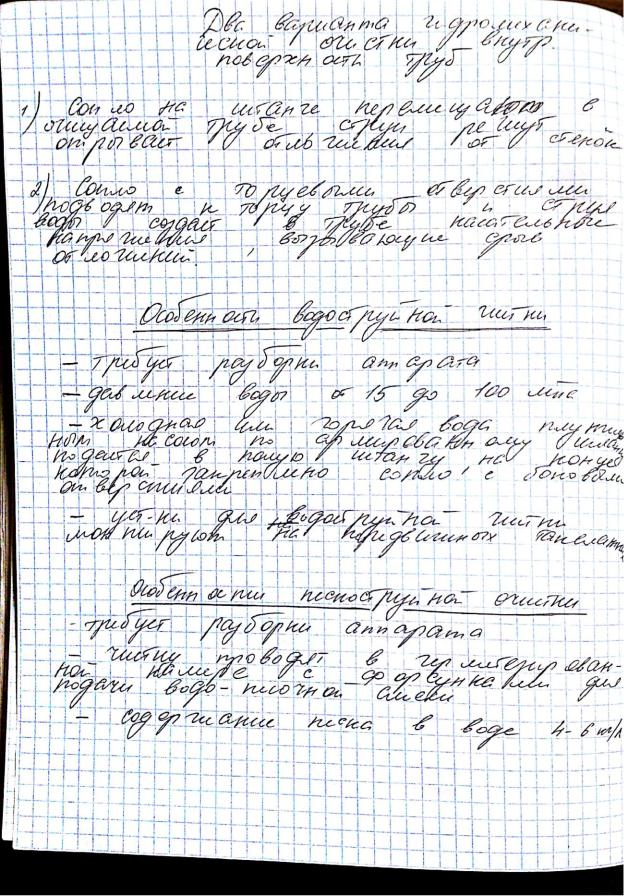 Два варианта гидромехани-
ческой очистки внутр.
поверхность труб
1) Сопло на штанге перемещают в
очищаемой трубе струи режут
отрывает отложения от стенок
2) Сопло с торцевыми отверстиями
подводят к торцу трубы и струя
воды создает в трубе касательные
напряжения, вызывающие срыв
отложений.
Особенности водоструйной чистки
– требует разборки аппарата
– давление воды от 15 до 100 мПа
– холодная или горячая вода плунжер
ным насосом по армированному шлангу
подается в полую штангу на конце
которой закреплено сопло с боковыми
отверстиями
– уст-ки для водоструйной чистки
монтируют на передвижных
Особенности пескоструйной очистки
- требует разборки аппарата
– чистку проводят в герметезирован-
ной камере с форсунками для
подачи водо-песочной смеси
– содержание песка в воде 4-6 кг/л